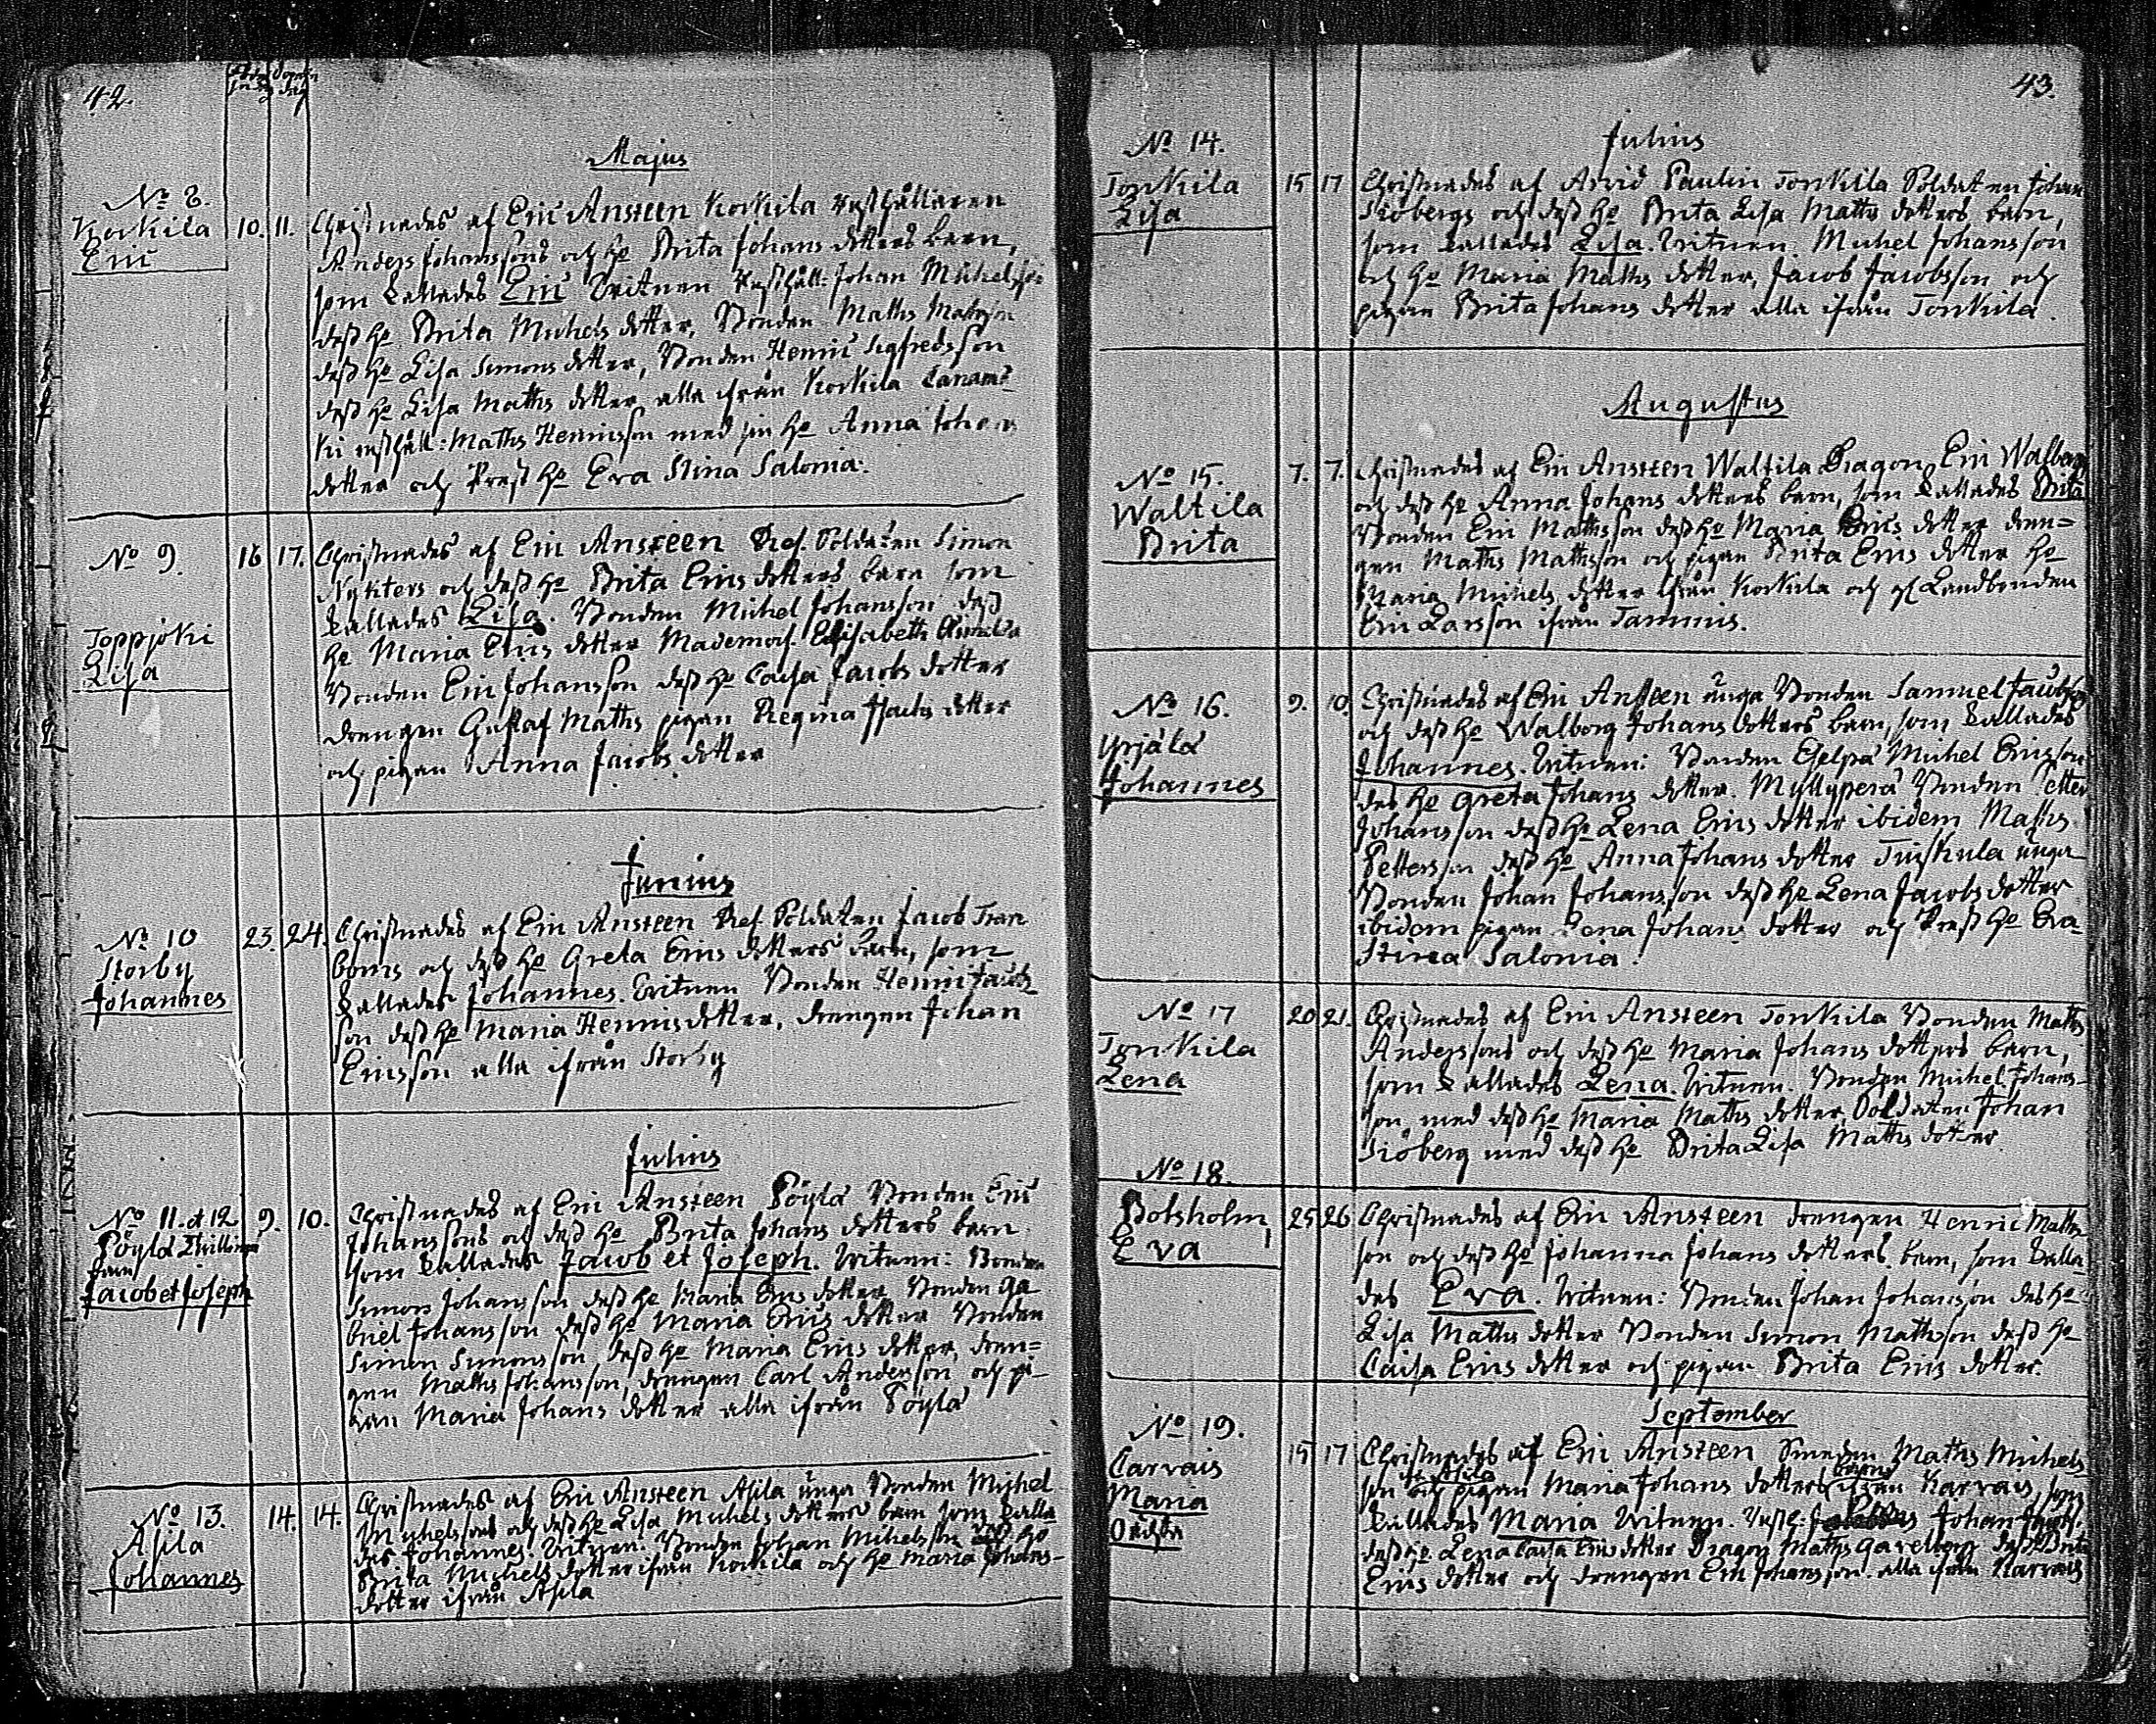 42.
Majus
No 8.
Korkila
Eric
10. 11.
Christnades af Eric Ansteen Korkila rusthållaren
Anders Johanssons och hu Brita Johans dotters barn,
som kallades Eric Vitnen rusthåll: Johan Michelsson
dess hu Brita Michels dotter, Bonden Maths Matsson
dess hu Lisa Simons dotter, Bonden Henric Sigfredsson
dess hu Lisa Maths dotter alla ifrån Korkila
rusthåll: Maths Henricsson med sin hu Anna Johans
dotter och Prest hu Eva Stina Salonia.
No 9.
Toppjoki
Lisa
16 17.
Christnades af Eric Ansteen Ref. Soldaten Simon
Nykters och dess hu Brita Erics dotters barn som
kallades Lisa. Bonden Michel Johansson dess
hu Maria Erics dotter Mademois. Elisabeth
Bonden Eric Johansson dess hu Caisa Jacobs dotter
drengen Gustaf Maths pigan Regina Isacs dotter
och pigan Anna Jacobs dotter
Junius
No 10
Storby
Johannes
23. 24.
Christnades af Eric Ansteen Ref Soldaten Jacob Tran
boms och dess hu Greta Erics dotters barn, som
kallades Johannes. Vitnen Bonden Henric Jacobs
son dess hu Maria Henrics dotter, drengen Johan
Ericsson alla ifrån Storby
Julius
No 11. et 12
Pöylä Tvillingar
Jacob et Joseph
9. 10.
Christnades af Eric Ansteen Pöylä Bonden Eric
Johanssons och dess hu Brita Johans dotters barn
som kallades Jacob et Joseph. Vitnen: Bonden
Simon Johansson dess hu Maria Erics dotter Bonden Ga
briel Johansson dess hu Maria Erics dotter Bonden
Simon Simonsson dess hu Maria Erics dotter, dren=
gen Maths Johansson, drengen Carl Andersson och pi-
gan Maria Johans dotter alla ifrån Pöylä
No 13.
Asila
Johannes
14. 14.
Christnades af Eric Ansteen Asila unga Bonden Michel
Michelssons och dess hu Lisa Michels dotters barn som kalla
des Johannes. Vitnen. Bonden Johan Michelsson hu
Brita Michels dotter ifrån Korkila och hu Maria Johans-
dotter ifrån Asila
43.
Julius
No 14.
Tonkila
Lisa
15 17
Christnades af Arvid Paulin Tonkila Soldaten Johan
Siöbergs och dess hu Brita Lisa Maths dotters barn,
som kallades Lisa. Vitnen Michel Johansson
och hu Maria Maths dotter, Jacob Jacobsson och
pigan Brita Johans dotter alla ifrån Tonkila.
Augustus
No 15.
Waltila
Brita
7. 7.
Christnades af Eric Ansteen Waltila Dragon Eric Walberg
och dess hu Anna Johans dotters barn, som kallades Brita
Bonden Eric Mathsson dess hu Maria Erics dotter dren=
gen Maths Mathsson och pigan Brita Erics dotter hu
Maria Michels dotter ifrån Korkila och Landbonden
Eric Larsson ifrån Tammis.
No 16.
Yrjälä
Johannes
9. 10.
Christnades af Eric Ansteen unga Bonden Samuel Jacobs
och dess hu Walborg Johans dotters barn, som kallades
Johannes. Vitnen: Bonden Eselpä Michel Ericsson
des hu Greta Johans dotter. Myllyperä Bonden Petter
Johansson dess hu Lena Erics dotter ibidem Maths
Pettersson dess hu Anna Johans dotter Tuiskula unga
Bonden Johan Johansson dess hu Lena Jacobs dotter
ibidem pigan Lena Johans dotter och Prest hu Eva
Stina Salonia.
No 17
Tonkila
Lena
20 21.
Christnades af Eric Ansteen Tonkila Bonden Maths
Anderssons och dess hu Maria Johans dotters barn,
som kallades Lena. Vitnen. Bonden Michel Johans-
son med dess hu Maria Maths dotter Soldaten Johan
Siöberg med dess hu Brita Lisa Maths dotter
No 18.
Botsholm
Eva
25 26
Christnades af Eric Ansteen drengen Henric Maths
son och dess hu Johanna Johans dotters barn, som kalla
des Eva. Vitnen: Bonden Johan Johansson des hu
Lisa Maths dotter Bonden Simon Mathsson dess hu
Caisa Erics dotter och pigan Brita Erics dotter.
September
No 19.
Carvais
Maria
Oächta
15 17
Christnades af Eric Ansteen Smeden Maths Michels
son af Asila och pigan Maria Johans dotters barn ifrån Karvais, som
kallades Maria Vitnen. Johan
dess hu Lena Caisa Erics dotter Dragon Maths Gavelberg dess Brita
Erics dotter och drengen Eric Johansson alla ifrån Karvais